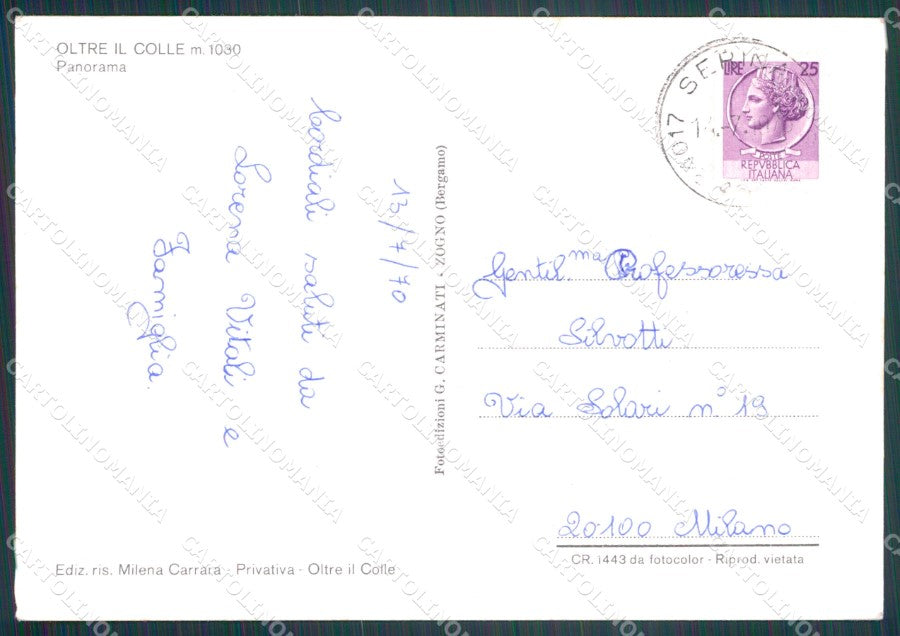 OLTRE IL COLLE m. 1030
Panorama
13/7/70
Cordiali saluti da
Lorena Vitali e
Famiglia.
Fotoedizioni G. CARMINATI - ZOGNO (Bergamo)
LIRE 25
POSTE
REPVBBLICA
ITALIANA
Gentil.ma Professoressa
Silvotti
Via Solari n° 19
20100 Milano
CR. 1443 da fotocolor - Riprod. vietata
Ediz. ris. Milena Carrara - Privativa - Oltre il Colle
CARTOLINOMANIA